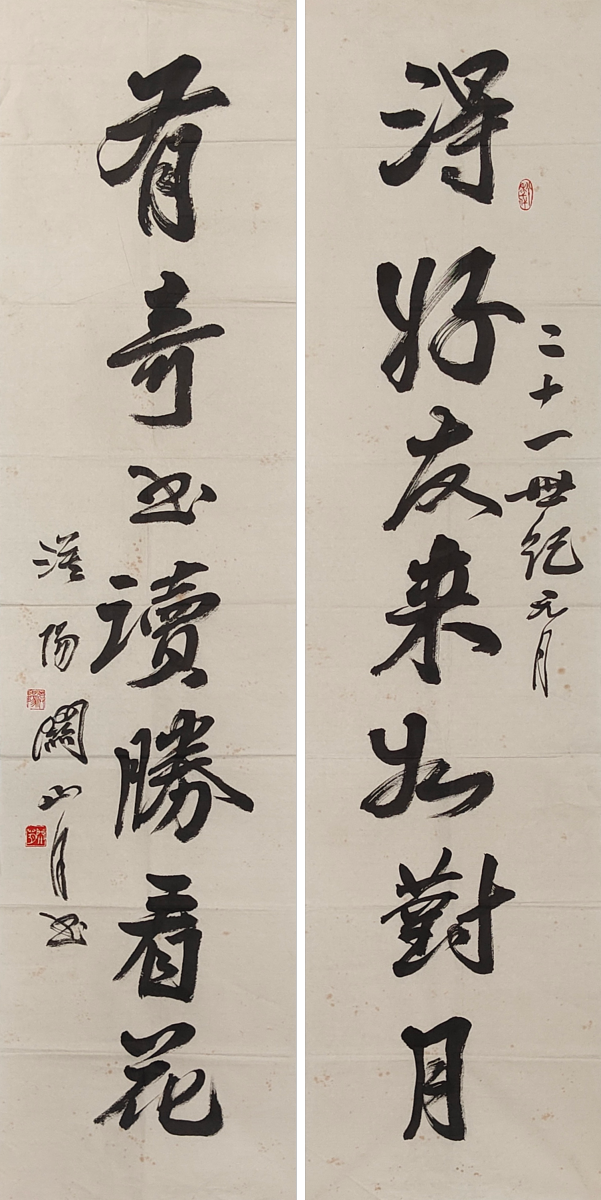 二十一世纪元月
得好友来如對月
有奇书讀勝看花
漠陽關山月书